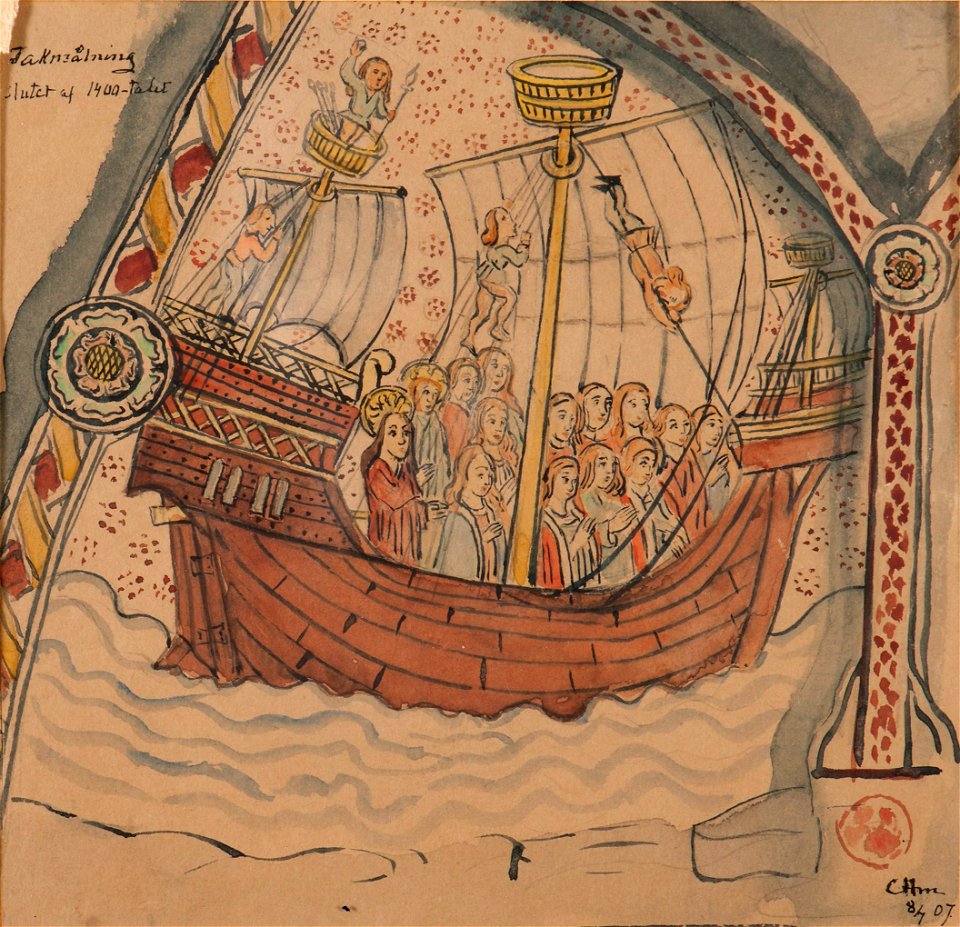 Takmålning
slutet af 1400-talet
CHm
8/7 07.